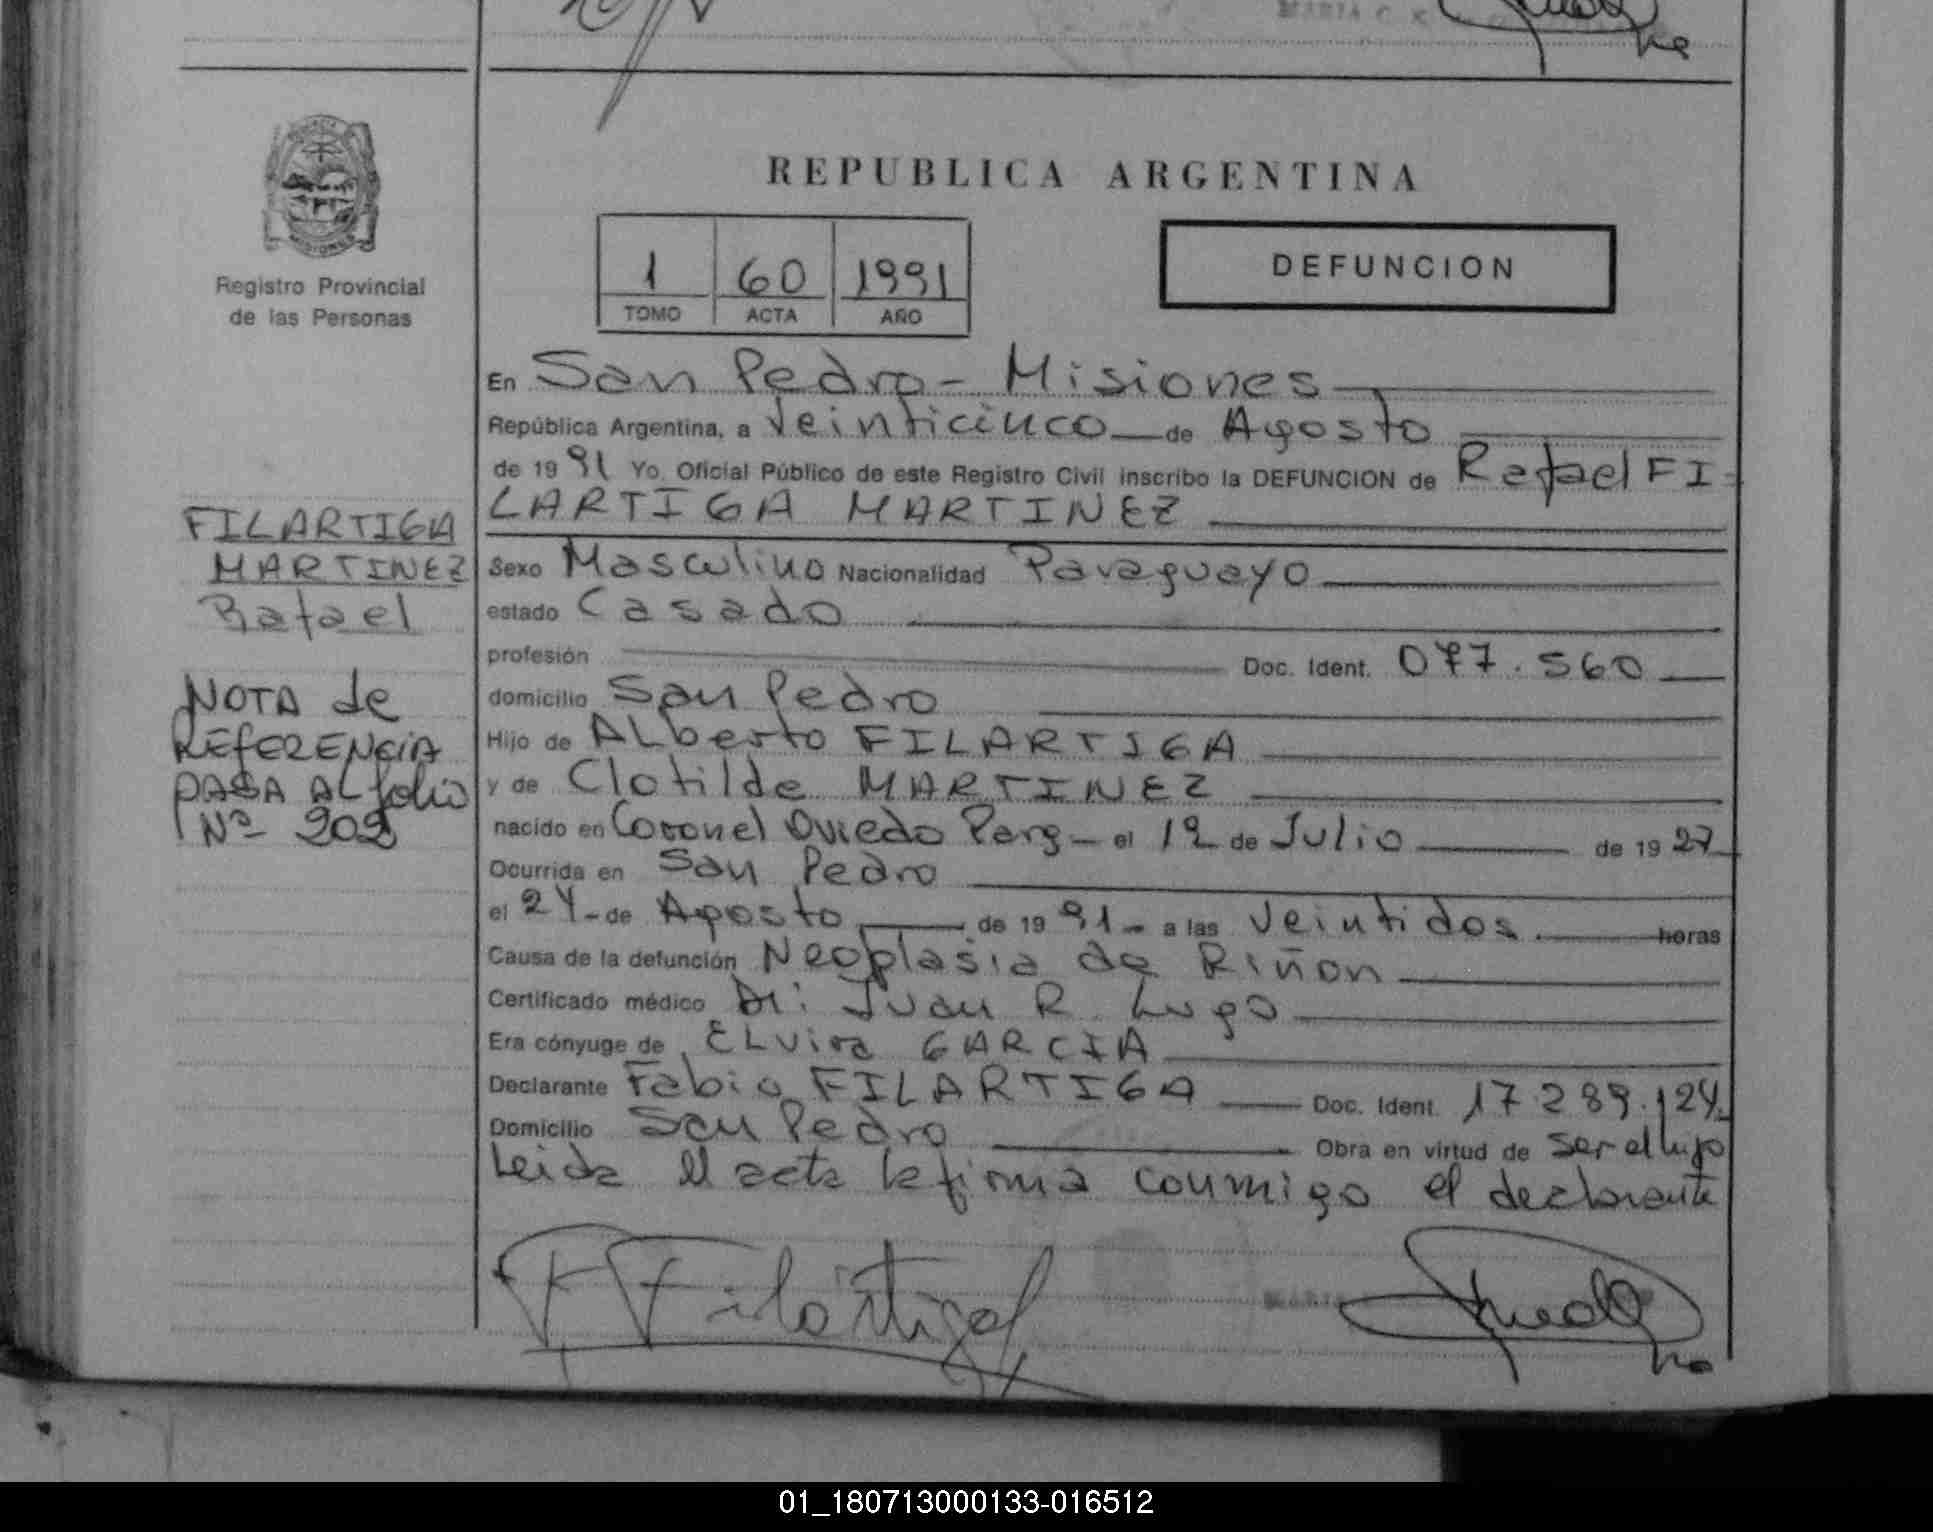 MARIA C. K.
REPUBLICA ARGENTINA
MISIONES
Registro Provincial
de las Personas
1 60 1991
TOMO ACTA AÑO
DEFUNCION
En San Pedro - Misiones
República Argentina, a Veinticinco de Agosto
de 19 91 Yo, Oficial Público de este Registro Civil inscribo la DEFUNCION de Rafael FI-
LARTIGA MARTINEZ
FILARTIGA
MARTINEZ
Rafael
NOTA de
REFERENCIA
PASA AL folio
Nº 202
Sexo Masculino Nacionalidad Paraguayo
estado Casado
profesión Doc. Ident. 077.560
domicilio San Pedro
Hijo de ALberto FILARTIGA
y de Clotilde MARTINEZ
nacido en Coronel Oviedo Parg - el 12 de Julio de 19 27
Ocurrida en San Pedro
el 24 - de Agosto de 19 91 - a las Veintidos horas
Causa de la defunción Neoplasia de Riñon
Certificado médico Dr: Juan R. Lugo
Era cónyuge de ELvira GARCIA
Declarante Fabio FILARTIGA Doc. Ident. 17.289.124
Domicilio San Pedro Obra en virtud de ser el hijo
Leida el acta la firma conmigo el declarante
F Filártiga
MARIA
01_180713000133-016512